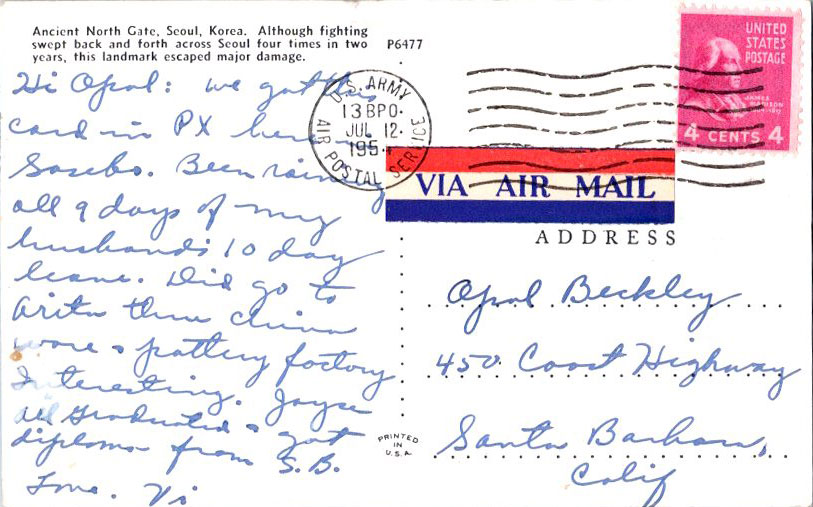 Ancient North Gate, Seoul, Korea. Although fighting
swept back and forth across Seoul four times in two
years, this landmark escaped major damage.
P6477
Hi Opal: we got this
card in PX here in
Sasebo. Been raining
all 9 days of my
husbands 10 day
leave. Did go to
Arita thru china
ware & pottery factory
Interesting. Joyce
all graduated & got
diploma from S.B.
Love. Vi
U.S. ARMY
13BPO.
JUL 12.
195
AIR POSTAL SERVICE
UNITED
STATES
POSTAGE
JAMES
MADISON
4 CENTS 4
VIA AIR MAIL
ADDRESS
Opal Beckley
450 Coast Highway
Santa Barbara,
Calif
PRINTED
IN
U.S.A.